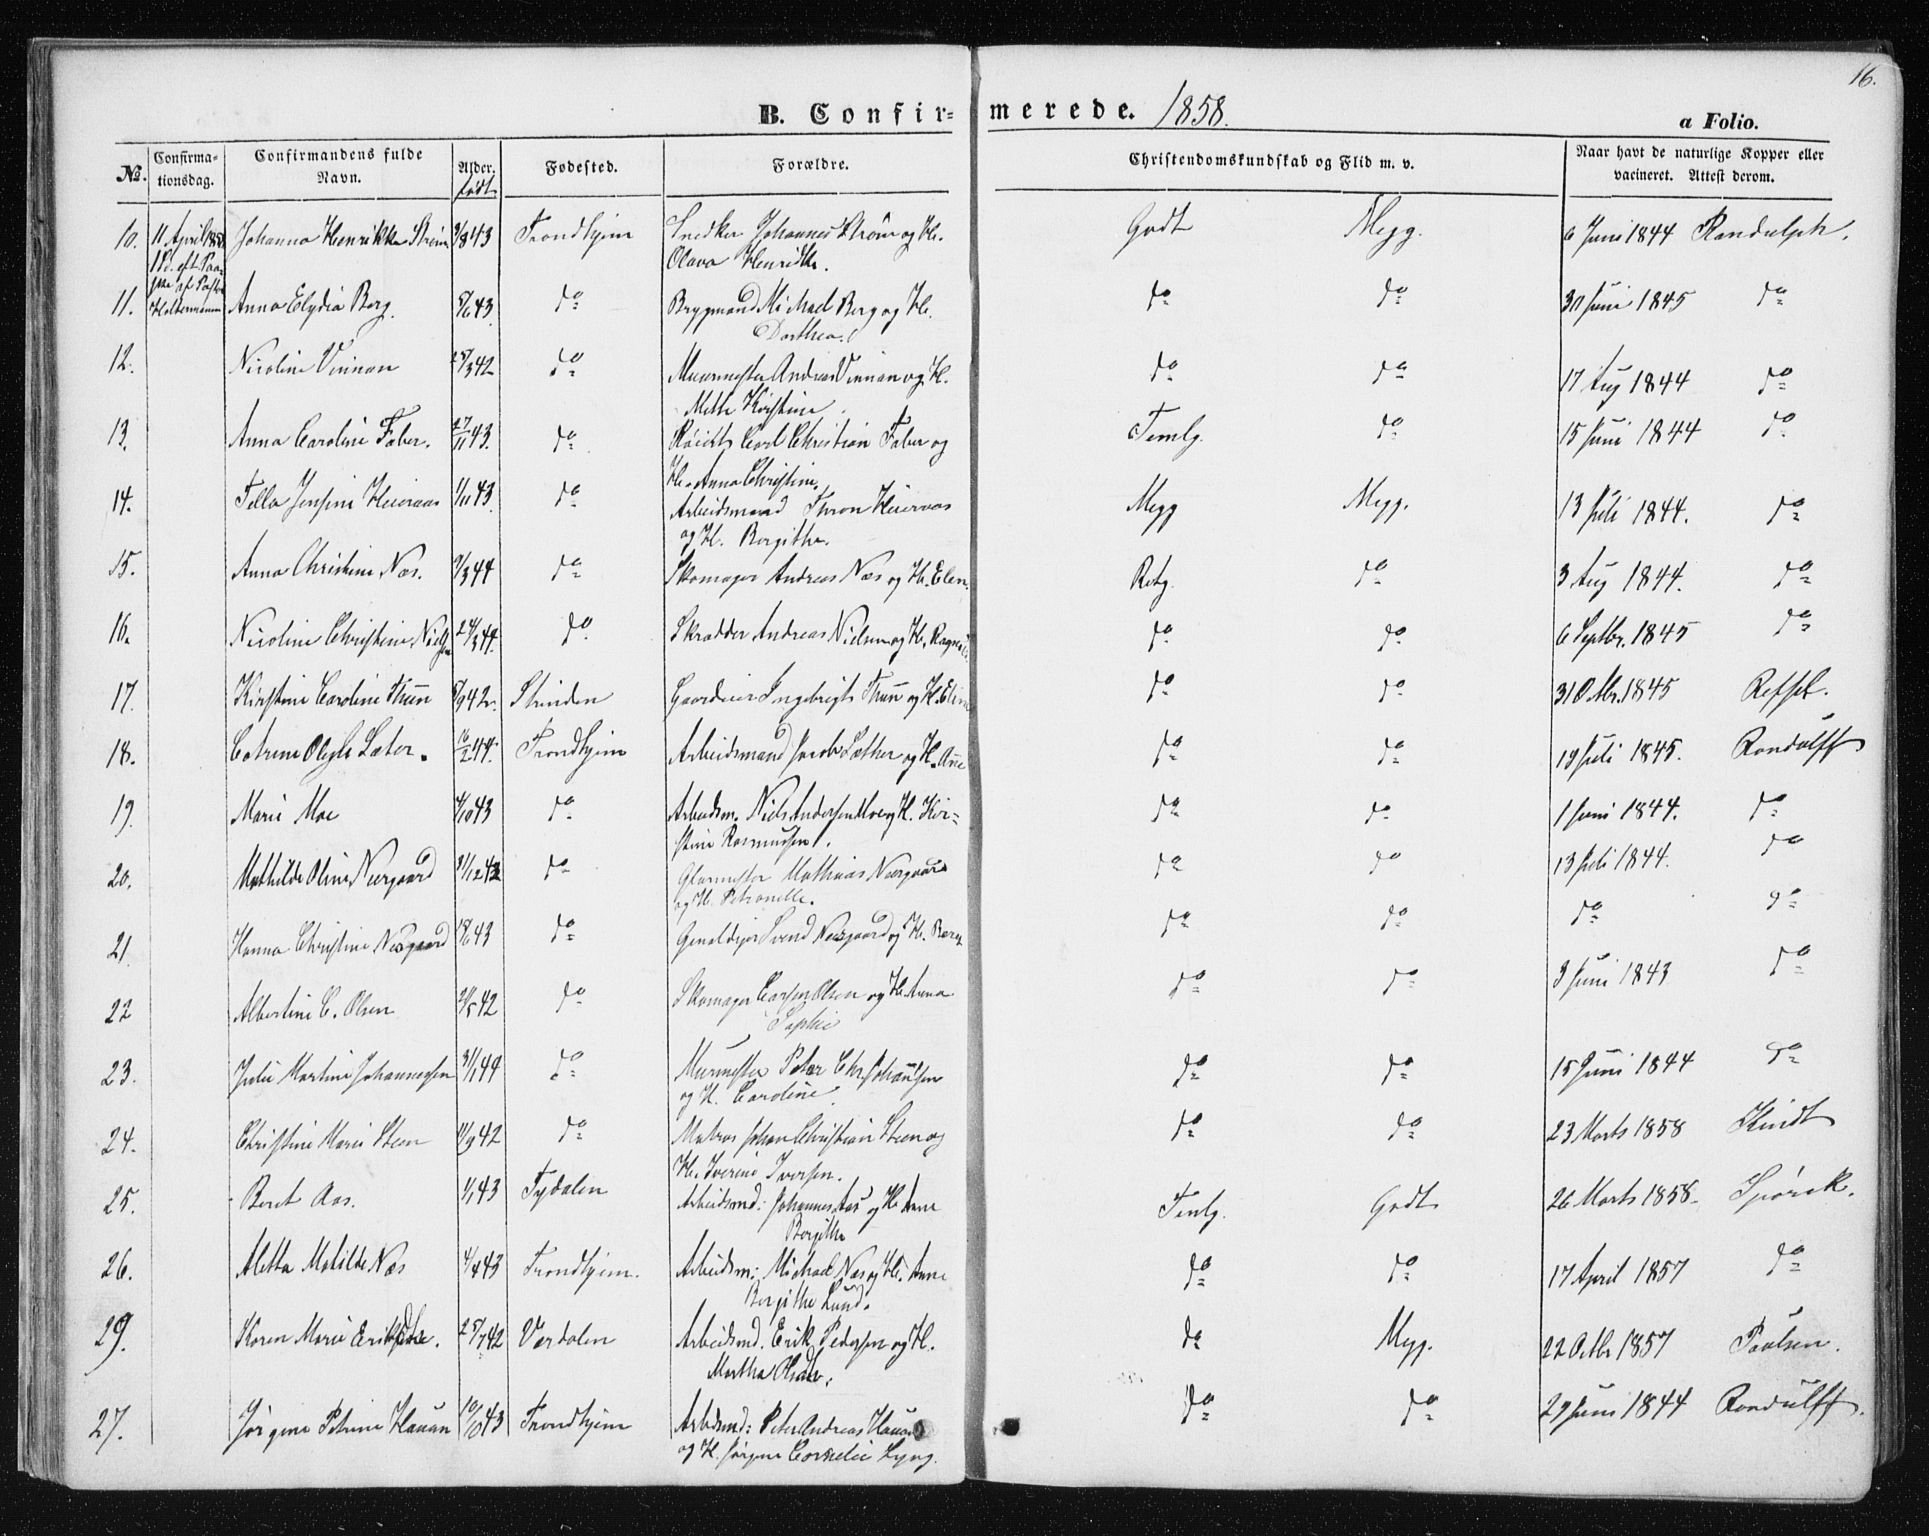 16.
B. Confirmerede. 1858.
a Folio.
No. Confirmationsdag. Confirmandens fulde Navn. Alder. født Fødested. Forældre. Christendomskundskab og Flid m. v. Naar havt de naturlige Kopper eller vacineret. Attest derom.
10. 11 April 1858 Johanna Henrikke Strøm /8 43 Trondhjem Snedker Johannes Strøm og H. Godt Megg. 6 Juni 1844 Randulph.
1 Sd. eft. Paa- Olava Henrikke.
11. Anna Elydia Berg. 5/6 43. do Brygmand Michael Berg og H. do do 30 Juni 1845 do
Dorthea.
12. Nicoline Vinnan 25/3 42 do Muurmester Andreas Vinnan og H. do do 17 Aug 1844 do
Mette Kirstine.
13. Anna Caroline Faber. 27/11 43. do Carl Christian Faber og Temlg. do 15 Juni 1844 do
H. Anna Christine.
14. Jensine 1/11 43 do Arbeidsmand Thron Megg Megg. 13 Juli 1844. do
og H. Bergithe.
15. Anna Christine Næs. 9/3 44 do Skomager Andreas Næs og H. Elen. do 3 Aug 1844. do
16. Nicoline Christine Nielsen 24/3 44. do Skrædder Andreas Nielsen og H. do do 6 Septbr. 1845 do
17. Kirstine Caroline Thun 8/9 42. Strinden Gaardeier Ingebrigt Thun og H. do do 31 1845
18. Cotrine Sæter. 16/2 44. Trondhjem Arbeidsmand Jacob Sæther og H. Ane do do 19 Juli 1845. Randulff
19. Marie Moe 4/10 43 do Arbeidsm. Niels Andersen Moe og H. Kir- do do 1 Juni 1844. do
stine Rasmussen.
20. Mathilde Oline Neergaard 31/12 43 do Glarmester Mathias Neergaard do do 13 Juli 1844. do
og H. Petronelle.
21. Hanna Christine Nesgaard 18/6 43 do Svend Nesgaard og H. do do do do
22 Albertine C. Olsen 21/5 42 do Skomager Olsen og H. Anna do do 3 Juni 1843 do
Sophie
23. Julie Martine Johannesen 31/1 44 do Murmester Peter Chr. Johansen do do 15 Juni 1844 do
og H. Caroline.
24. Christine Marie Steen 11/9 42 do Matros Johan Christian Steen og do do 23 Marts 1858 Kindt
H. Iverine Iversen.
25. Beret Aas. 1/1 43 Tydalen Arbeidsmd: Johannes Aas og H. Anne Temlg. Godt 26 Marts 1858. Spørck.
Bergithe
26. Aletta Matilde Næs 4/4 43 Trondhjem. Arbeidsm: Michael Næs og H. Anne do do 17 April 1857 do
Bergithe Lund.
29. Karen Marie Eriksdtr. 25/7 42 Værdalen Arbeidsmd. Erik Pedersen og H. do Megg. 22 Octbr 1857 Paulsen.
Martha Olsdtr.
27. Jørgine Petrine Hauan 10/10 43 Trondhjem Arbeidsmd: Peter Andreas Hauan do do 29 Juni 1844 Randulff.
og H. Jørgine Cornelie Lyng.